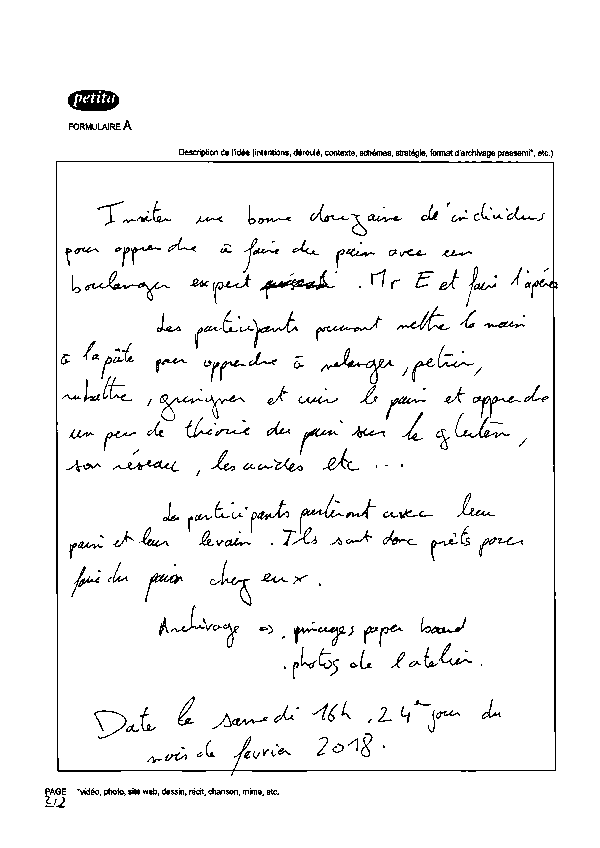 petita
FORMULAIRE A
Description de l'idée (intentions, déroulé, contexte, schémas, stratégie, format d'archivage pressenti*, etc.)
Inviter une bonne douzaine de individus
pour apprendre à faire du pain avec un
boulanger expert . Mr E et faire l'apéro
Les participants pourront mettre la main
à la pâte pour apprendre à mélanger, petrir,
rabattre, grigner et cuire le pain et apprendre
un peu de théorie du pain sur le gluten,
son réseau, les acides etc ...
Les participants partiront avec leur
pain et leur levain. Ils sont donc prêts pour
faire du pain chez eux.
Archivage => . images paper board
. photos de l'atelier.
Date le samedi 16h, 24 jour du
mois de fevrier 2018.
PAGE *vidéo, photo, site web, dessin, récit, chanson, mime, etc.
2/2